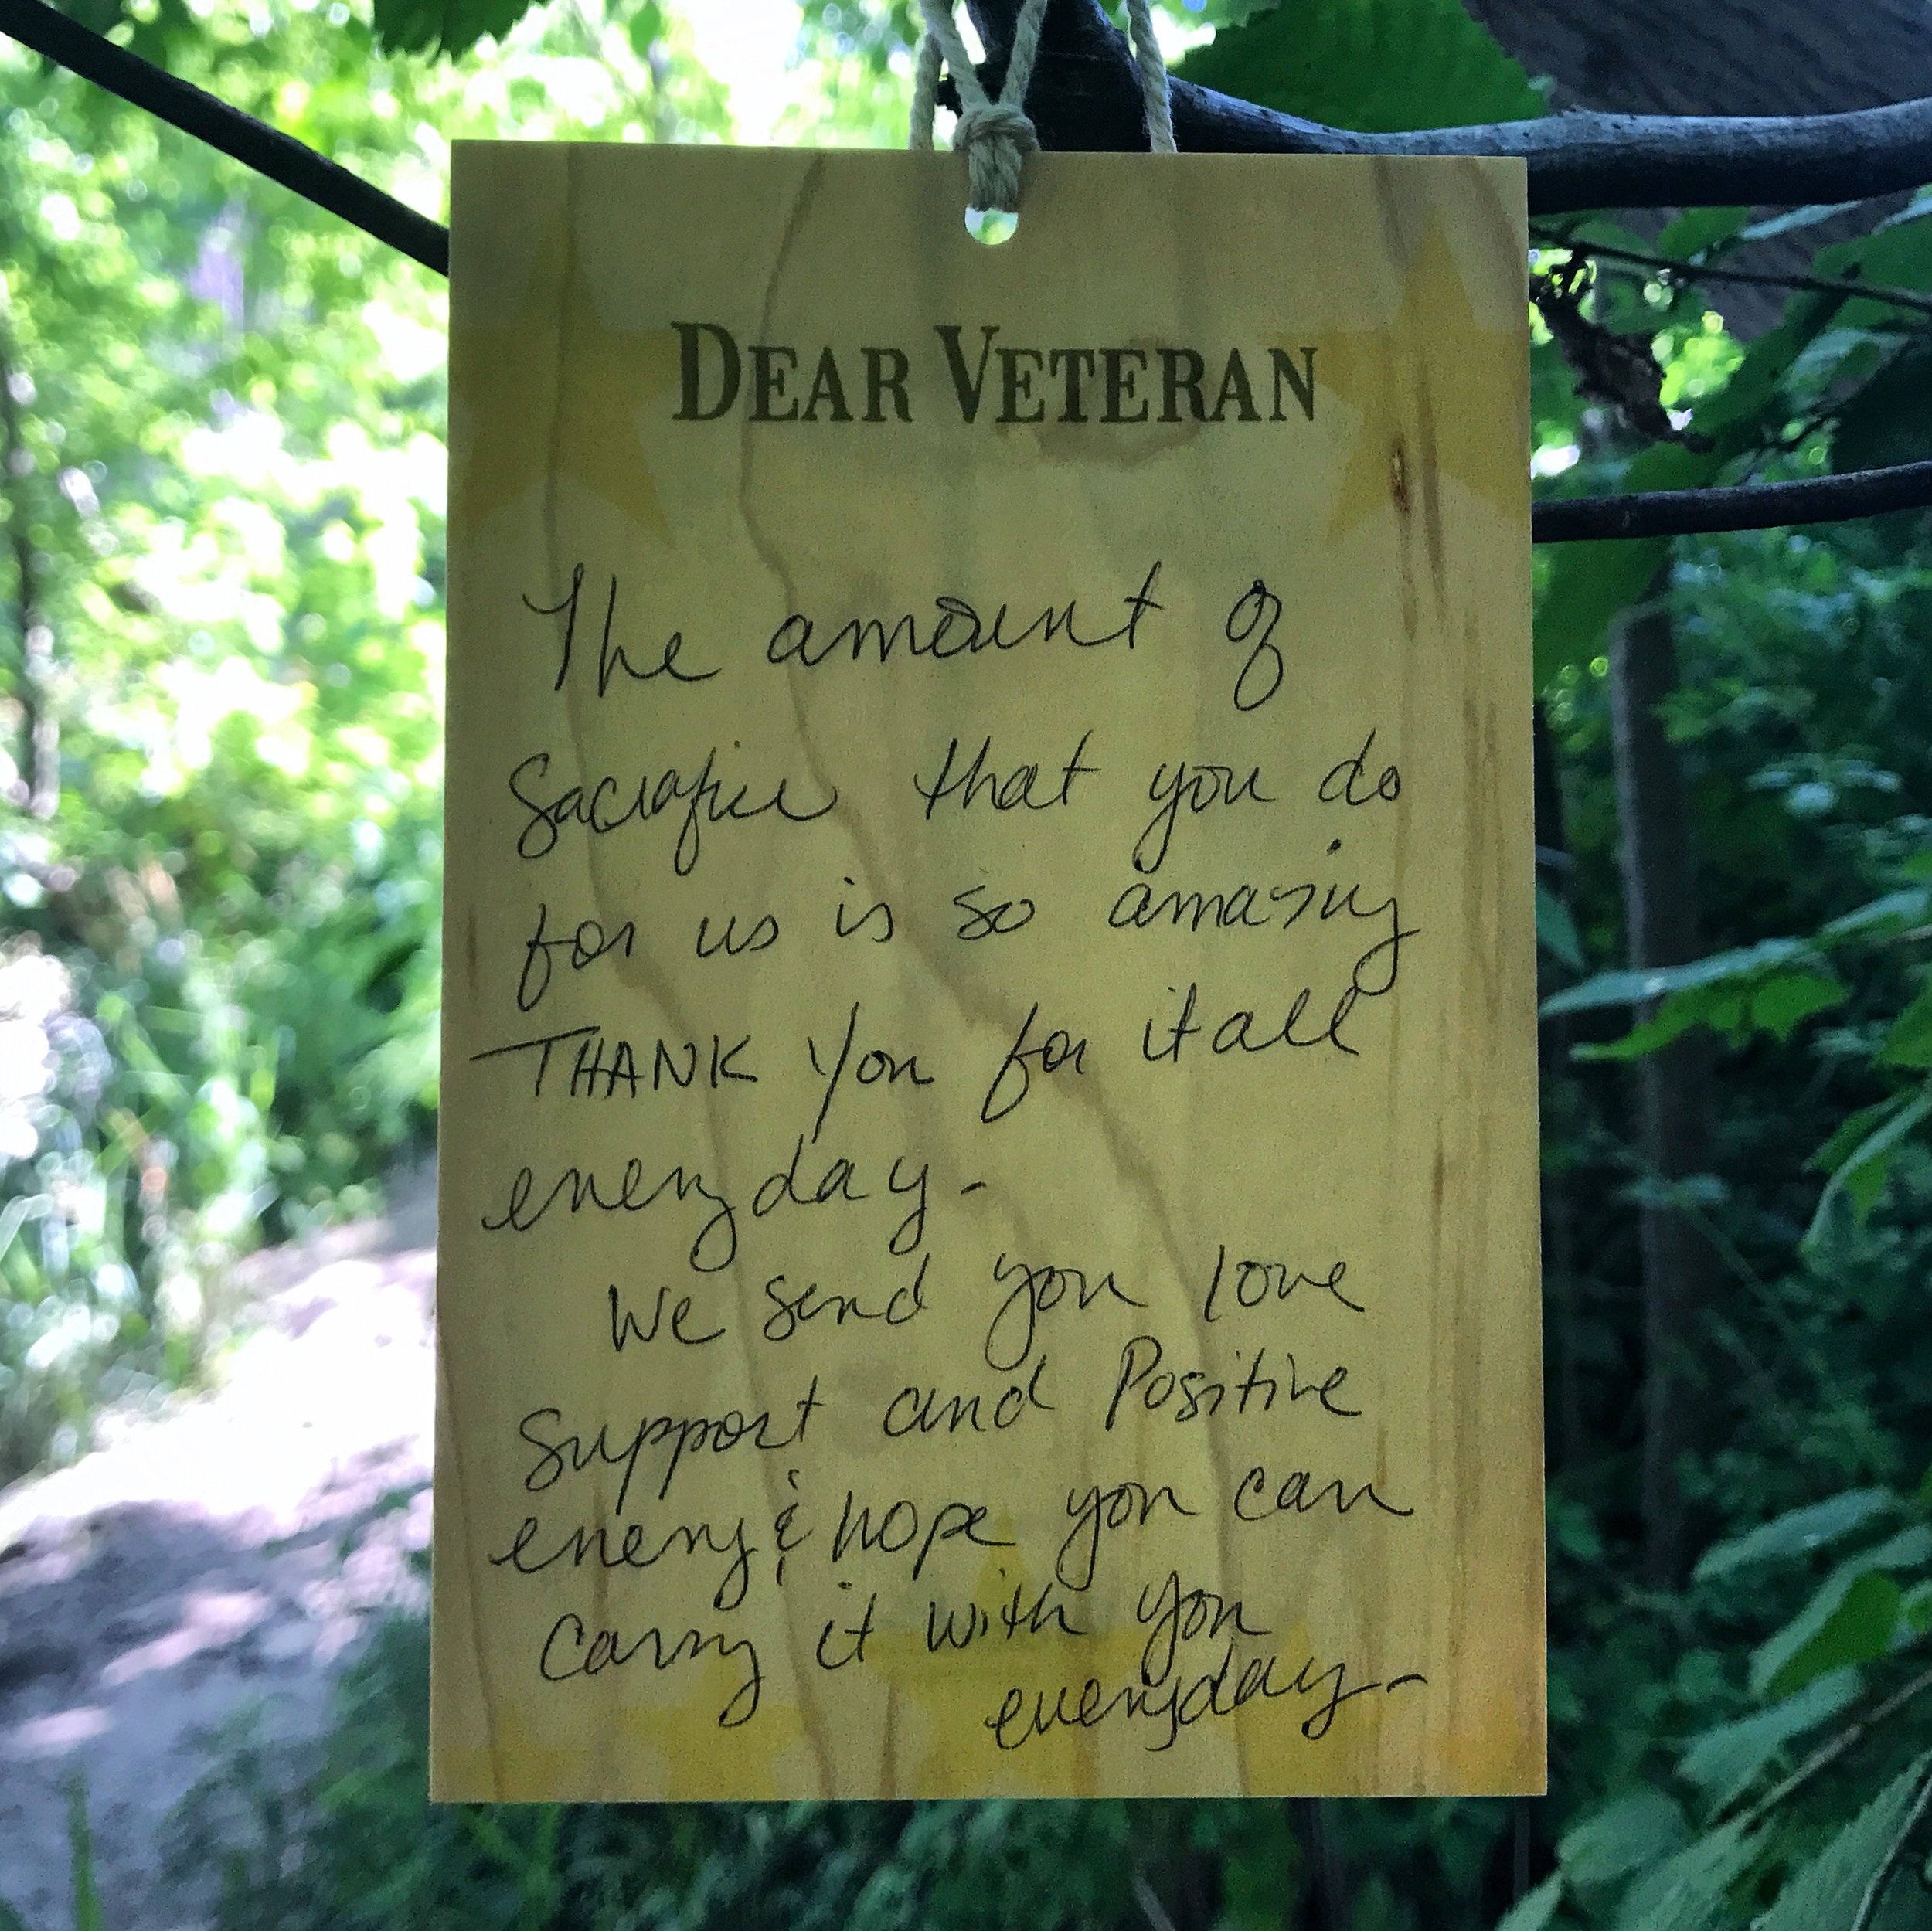 DEAR VETERAN
The amount of
Sacrafice that you do
for us is so amazing
THANK You for it all
everyday-
We send you love
Support and Positive
energy & hope you can
carry it with you
everyday-